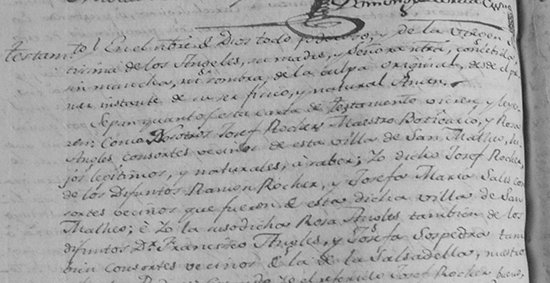 Testamto En el nbre de Dios todo poderoso, y de la Virgen S
tisima de los Angeles, su madre, y Señora ntra, concebida
sin mancha, ni sombra de la culpa original, desde el pri
mer instante de su ser fisico, y natural Amen.
Sepan quantos esta carta de testamento vieren, y leye
ren: Como Nosotros Josef Rocher Maestro Boticario, y Rosa
Angles consortes vecinos de esta villa de San Matheo, hi
jos legitimos, y naturales, à saber; Yo dicho Josef Rocher,
de los difuntos Ramon Rocher, y Josefa Maria Sales con
sortes vecinos que fueron de esta dicha villa de San
Matheo; è Yo la susodicha Rosa Angles tambien de los
difuntos Dn. Francisco Angles, y Josefa Sospedra tam
bien consortes vecinos de la de la Salsadella,
el referido Josef Rocher bueno,